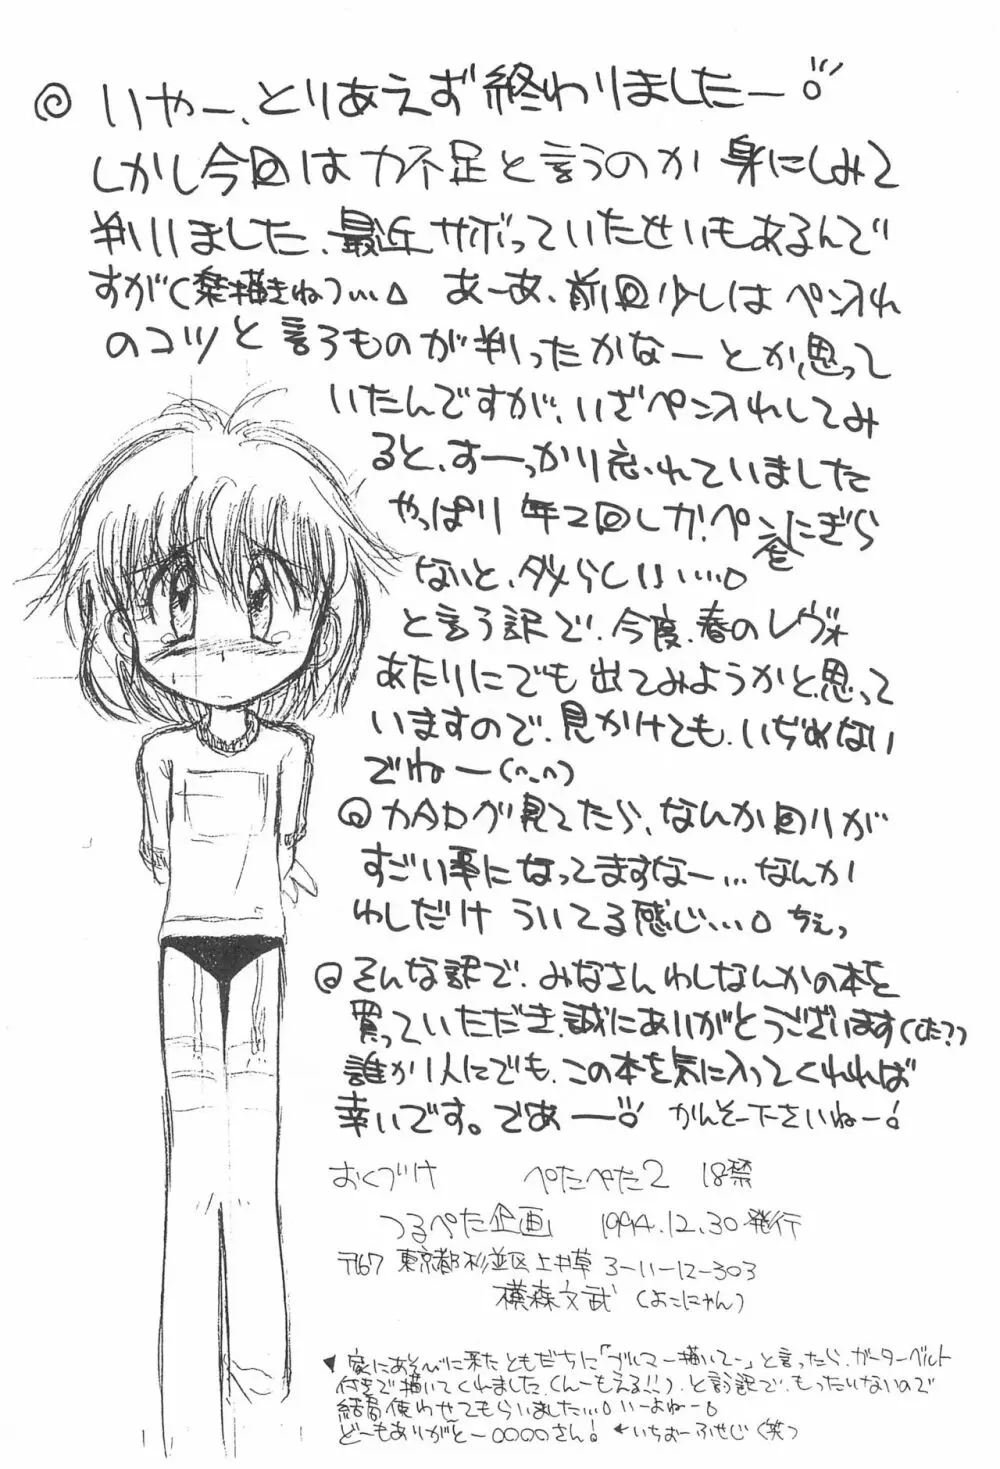 ◎ いやー、とりあえず終わりましたー!
しかし今回は力不足と言うのか身にしみて
判りました、最近サボっていたせいもあるんで
すが(楽描きねっ… あーあ、前回少しはペン入れ
のコツと言うものが判ったかなーとか思って
いたんですが、いざペン入れしてみ
ると、すーっかり忘れていました
やっぱり年2回しかペンにぎら
ないと、ダメらしい…。
と言う訳で、今度、春のレヴォ
あたりにでも出てみようかと思って
いますので、見かけても、いぢめない
でねー(^_^)
◎カタログ見てたら、なんか回りが
すごい事になってますなー…なんか
わしだけういてる感じ…。ちぇっ
◎そんな訳で、みなさんわしなんかの本を
買っていただき、誠にありがとうございます
誰か1人にでも、この本を気に入ってくれれば
幸いです。であーー! かんそー下さいねー!
おくづけ ぺたぺた2 18禁
つるぺた企画 1994.12.30発行
〒167 東京都杉並区上井草3-11-12-303
横森文武(よこにゃん)
▼家にあそびに来たともだちに「ブルマー描いてー」と言ったら、ガーターベルト
付きで描いてくれました(んーもえる!!)、と言う訳で、もったいないので
結局使わせてもらいました…。いーよねー。
どーもありがとーOOOOさん! ←いちおーふせじ(笑)